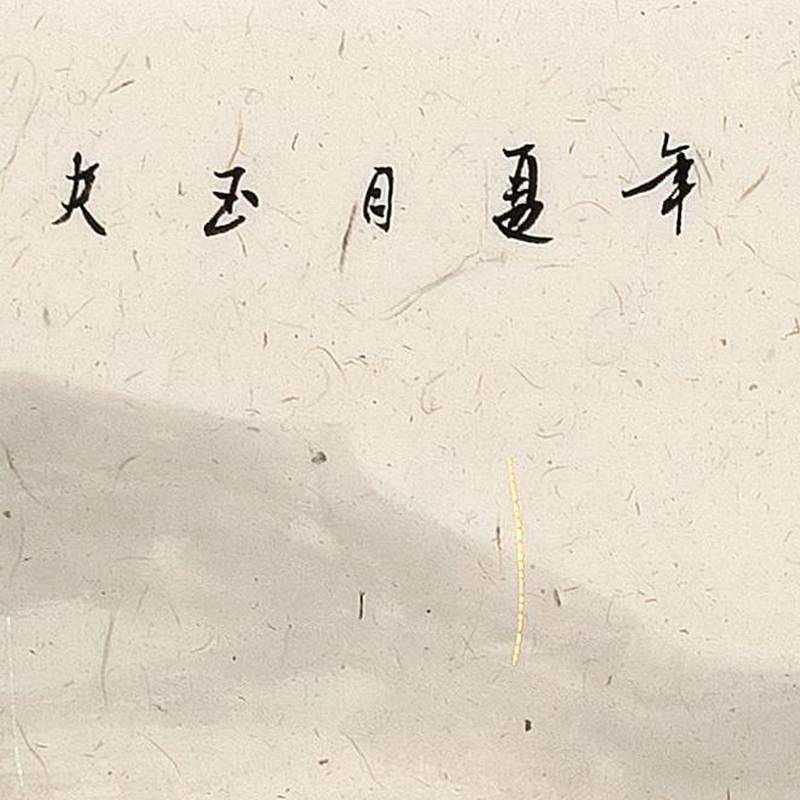 年夏月玉